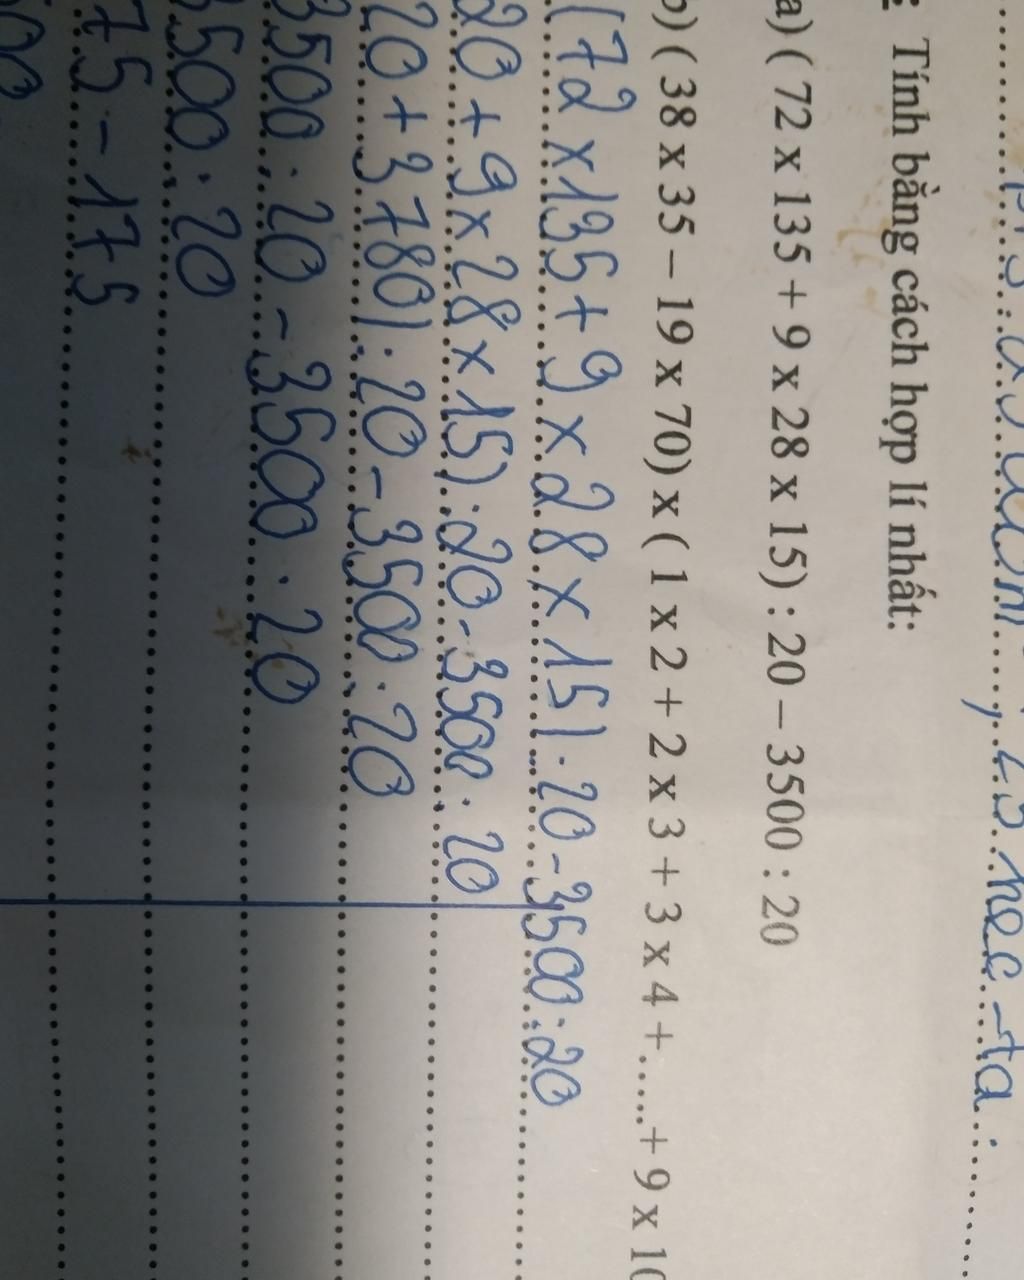 Tính bằng cách hợp lí nhất:
a) ( 72 x 135 + 9 x 28 x 15) : 20 – 3500 : 20
b) ( 38 x 35 – 19 x 70) x ( 1 x 2 + 2 x 3 + 3 x 4 + ......+ 9 x 10
(72 x 135 + 9 x 28 x 15) : 20 - 3500 : 20
20 + 9 x 28 x 15) : 20 - 3500 : 20
20 + 3780) : 20 - 3500 : 20
3500 : 20 - 3500 : 20
500 : 20
75 - 175
00